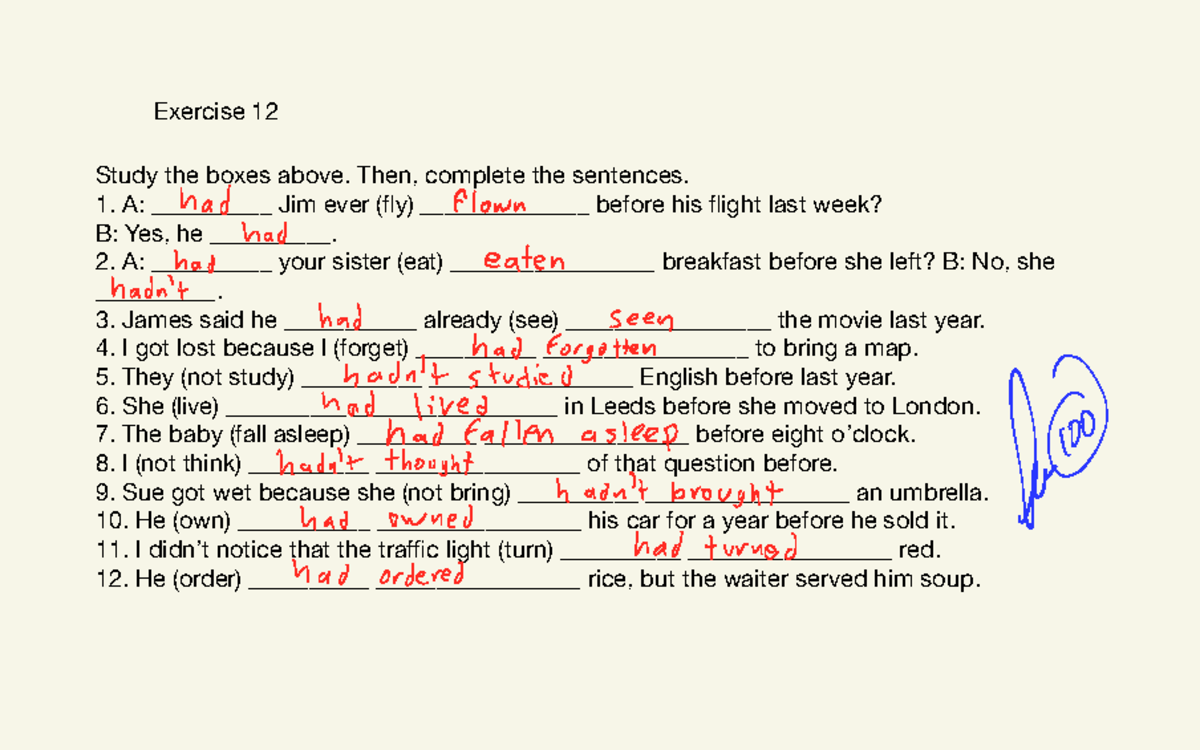 Exercise 12
Study the boxes above. Then, complete the sentences.
1. A: had Jim ever (fly) flown before his flight last week?
B: Yes, he had.
2. A: had your sister (eat) eaten breakfast before she left? B: No, she
hadn't.
3. James said he had already (see) seen the movie last year.
4. I got lost because I (forget) had forgotten to bring a map.
5. They (not study) hadn't studied English before last year.
6. She (live) had lived in Leeds before she moved to London.
7. The baby (fall asleep) had fallen asleep before eight o'clock.
8. I (not think) hadn't thought of that question before.
9. Sue got wet because she (not bring) hadn't brought an umbrella.
10. He (own) had owned his car for a year before he sold it.
11. I didn't notice that the traffic light (turn) had turned red.
12. He (order) had ordered rice, but the waiter served him soup.
100